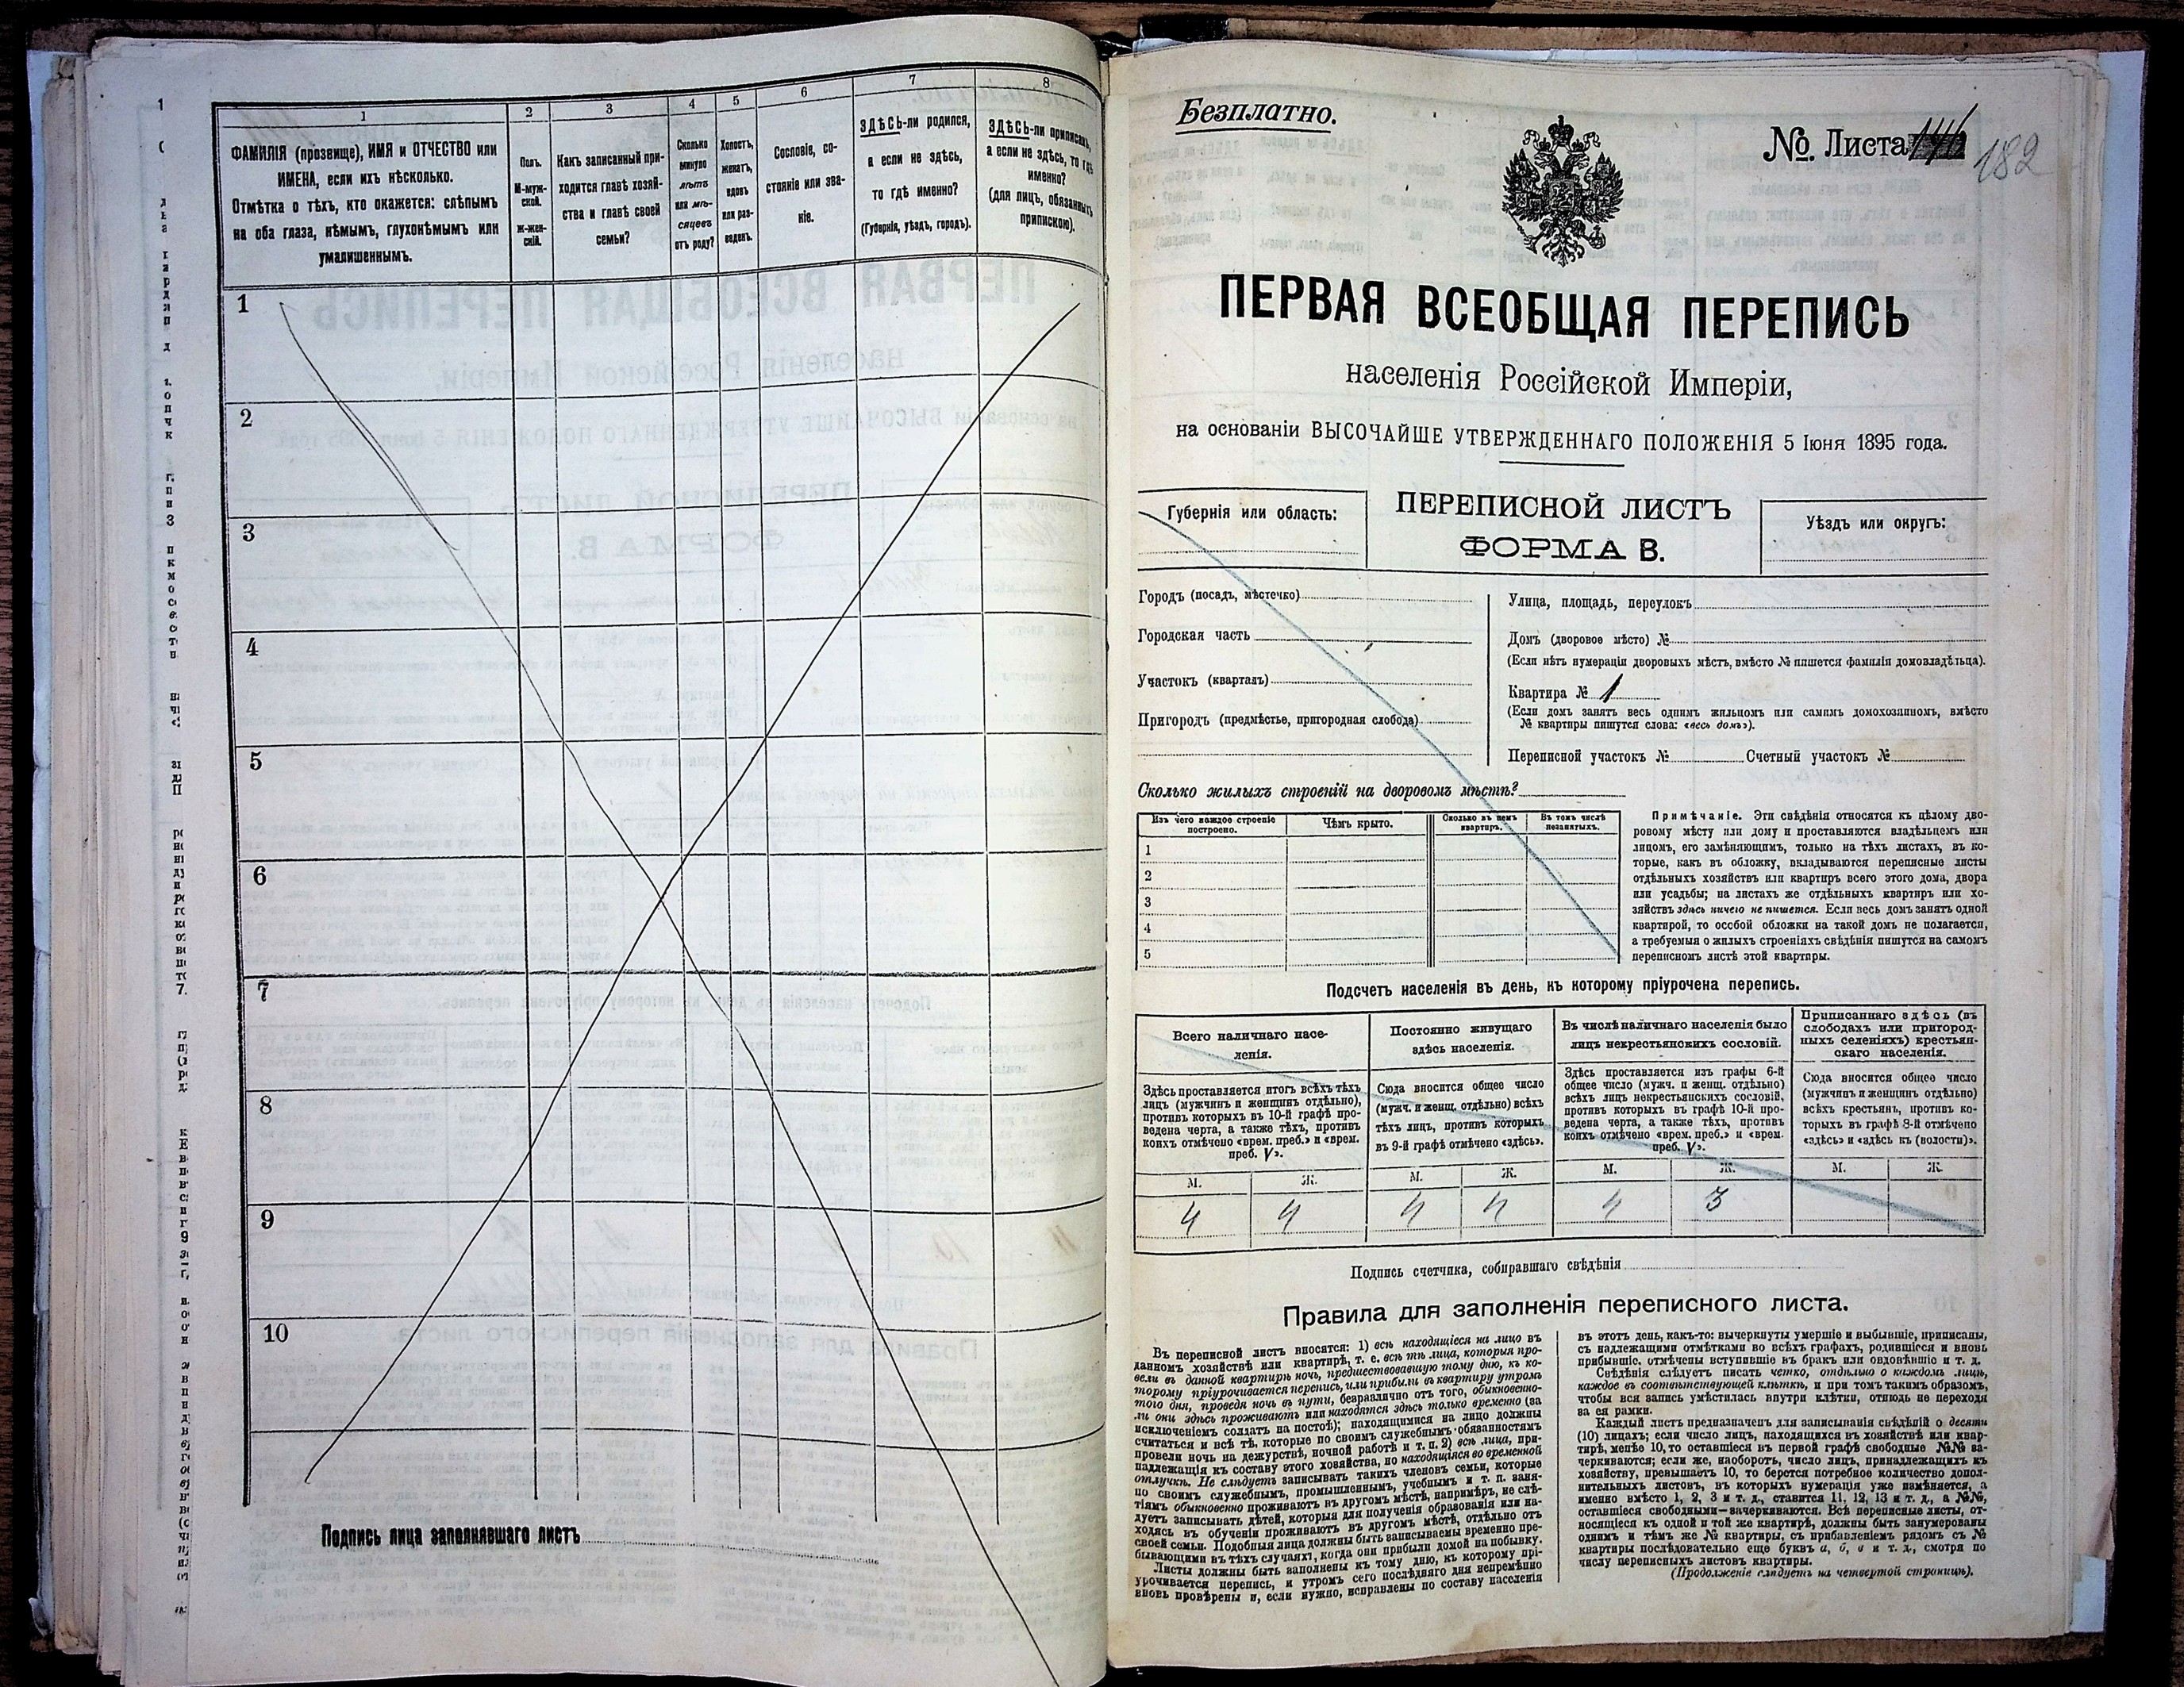 1
2
3
4
5
6
7
8
ФАМИЛІЯ (прозвище), ИМЯ и ОТЧЕСТВО или
ИМЕНА, если ихъ нѣсколько.
Отмѣтка о тѣхъ, кто окажется: слѣпымъ
на оба глаза, нѣмымъ, глухонѣмымъ или
умалишеннымъ.
Полъ.
М-муж-
ской.
Ж-жен-
скій.
Какъ записанный при-
ходится главѣ хозяй-
ства и главѣ своей
семьи?
Сколько
минуло
лѣтъ
или мѣ-
сяцевъ
отъ роду?
Холостъ,
женатъ,
вдовъ
или раз-
веденъ.
Сословіе, со-
стояніе или зва-
ніе.
ЗДѢСЬ-ли родился,
а если не здѣсь,
то гдѣ именно?
(Губернія, уѣздъ, городъ).
ЗДѢСЬ-ли приписанъ,
а если не здѣсь, то гдѣ
именно?
(для лицъ, обязанныхъ
припискою).
1
2
3
4
5
6
7
8
9
10
Подпись лица заполнявшаго листъ
Безплатно.
№. Листа 146
182
ПЕРВАЯ ВСЕОБЩАЯ ПЕРЕПИСЬ
населенія Россійской Имперіи,
на основаніи ВЫСОЧАЙШЕ УТВЕРЖДЕННАГО ПОЛОЖЕНІЯ 5 Іюня 1895 года.
Губернія или область:
ПЕРЕПИСНОЙ ЛИСТЪ
ФОРМА В.
Уѣздъ или округъ:
Городъ (посадъ, мѣстечко)
Городская часть
Участокъ (кварталъ)
Пригородъ (предмѣстье, пригородная слобода)
Улица, площадь, переулокъ
Домъ (дворовое мѣсто) №
(Если нѣтъ нумераціи дворовыхъ мѣстъ, вмѣсто № пишется фамилія домовладѣльца).
Квартира № 1
(Если домъ занятъ весь однимъ жильцомъ или самимъ домохозяиномъ, вмѣсто
№ квартиры пишутся слова: «весь домъ»).
Переписной участокъ № Счетный участокъ №
Сколько жилыхъ строеній на дворовомъ мѣстѣ?
Изъ чего каждое строеніе
построено.
Чѣмъ крыто.
Сколько въ немъ
квартиръ.
Въ томъ числѣ
незанятыхъ.
1
2
3
4
5
Примѣчаніе. Эти свѣдѣнія относятся къ цѣлому дво-
ровому мѣсту или дому и проставляются владѣльцемъ или
лицомъ, его замѣняющимъ, только на тѣхъ листахъ, въ ко-
торые, какъ въ обложку, вкладываются переписные листы
отдѣльныхъ хозяйствъ или квартиръ всего этого дома, двора
или усадьбы; на листахъ же отдѣльныхъ квартиръ или хо-
зяйствъ здѣсь ничего не пишется. Если весь домъ занятъ одной
квартирой, то особой обложки на такой домъ не полагается,
а требуемыя о жилыхъ строеніяхъ свѣдѣнія пишутся на самомъ
переписномъ листѣ этой квартиры.
Подсчетъ населенія въ день, къ которому пріурочена перепись.
Всего наличнаго насе-
ленія.
Постоянно живущаго
здѣсь населенія.
Въ числѣ наличнаго населенія было
лицъ некрестьянскихъ сословій.
Приписаннаго здѣсь (въ
слободахъ или пригород-
ныхъ селеніяхъ) крестьян-
скаго населенія.
Здѣсь проставляется итогъ всѣхъ тѣхъ
лицъ (мужчинъ и женщинъ отдѣльно),
противъ которыхъ въ 10-й графѣ про-
ведена черта, а также тѣхъ, противъ
коихъ отмѣчено «врем. преб.» и «врем.
преб. V».
Сюда вносится общее число
(мужч. и женщ. отдѣльно) всѣхъ
тѣхъ лицъ, противъ которыхъ
въ 9-й графѣ отмѣчено «здѣсь».
Здѣсь проставляется изъ графы 6-й
общее число (мужч. и женщ. отдѣльно)
всѣхъ лицъ некрестьянскихъ сословій,
противъ которыхъ въ графѣ 10-й про-
ведена черта, а также тѣхъ, противъ
коихъ отмѣчено «врем. преб.» и «врем.
преб. V».
Сюда вносится общее число
(мужчинъ и женщинъ отдѣльно)
всѣхъ крестьянъ, противъ ко-
торыхъ въ графѣ 8-й отмѣчено
«здѣсь» и «здѣсь къ (волости)».
М. Ж. М. Ж. М. Ж. М. Ж.
4 4 4 4 4 3
Подпись счетчика, собиравшаго свѣдѣнія
Правила для заполненія переписного листа.
Въ переписной листъ вносятся: 1) всѣ находящіеся на лицо въ
данномъ хозяйствѣ или квартирѣ, т. е. всѣ тѣ лица, которыя про-
вели въ данной квартирѣ ночь, предшествовавшую тому дню, къ ко-
торому пріурочивается перепись, или прибыли въ квартиру утромъ
того дня, проведя ночь въ пути, безразлично отъ того, обыкновенно-
ли они здѣсь проживаютъ или находятся здѣсь только временно (за
исключеніемъ солдатъ на постоѣ); находящимися на лицо должны
считаться и всѣ тѣ, которые по своимъ служебнымъ обязанностямъ
провели ночь на дежурствѣ, ночной работѣ и т. п. 2) всѣ лица, при-
надлежащія къ составу этого хозяйства, но находящіяся во временной
отлучкѣ. Не слѣдуетъ записывать такихъ членовъ семьи, которые
по своимъ служебнымъ, промышленнымъ, учебнымъ и т. п. заня-
тіямъ обыкновенно проживаютъ въ другомъ мѣстѣ, напримѣръ, не слѣ-
дуетъ записывать дѣтей, которыя для полученія образованія или на-
ходясь въ обученіи проживаютъ въ другомъ мѣстѣ, отдѣльно отъ
своей семьи. Подобныя лица должны быть записываемы временно пре-
бывающими въ тѣхъ случаяхъ, когда они прибыли домой на побывку.
Листы должны быть заполнены къ тому дню, къ которому прі-
урочивается перепись, и утромъ сего послѣдняго дня непремѣнно
вновь провѣрены и, если нужно, исправлены по составу населенія
въ этотъ день, какъ-то: вычеркнуты умершіе и выбывшіе, приписаны,
съ надлежащими отмѣтками во всѣхъ графахъ, родившіеся и вновь
прибывшіе, отмѣчены вступившіе въ бракъ или овдовѣвшіе и т. д.
Свѣдѣнія слѣдуетъ писать четко, отдѣльно о каждомъ лицѣ,
каждое въ соотвѣтствующей клѣткѣ, и при томъ такимъ образомъ,
чтобы вся запись умѣстилась внутри клѣтки, отнюдь не переходя
за ея рамки.
Каждый листъ предназначенъ для записыванія свѣдѣній о десяти
(10) лицахъ; если число лицъ, находящихся въ хозяйствѣ или квар-
тирѣ, менѣе 10, то оставшіеся въ первой графѣ свободные №№ за-
черкиваются; если же, наоборотъ, число лицъ, принадлежащихъ къ
хозяйству, превышаетъ 10, то берется потребное количество допол-
нительныхъ листовъ, въ которыхъ нумерація уже измѣняется, а
именно вмѣсто 1, 2, 3 и т. д., ставится 11, 12, 13 и т. д., а №№,
оставшіеся свободными—зачеркиваются. Всѣ переписные листы, от-
носящіеся къ одной и той же квартирѣ, должны быть занумерованы
однимъ и тѣмъ же № квартиры, съ прибавленіемъ рядомъ съ №
квартиры послѣдовательно еще буквъ а, б, в и т. д., смотря по
числу переписныхъ листовъ квартиры.
(Продолженіе слѣдуетъ на четвертой страницѣ).